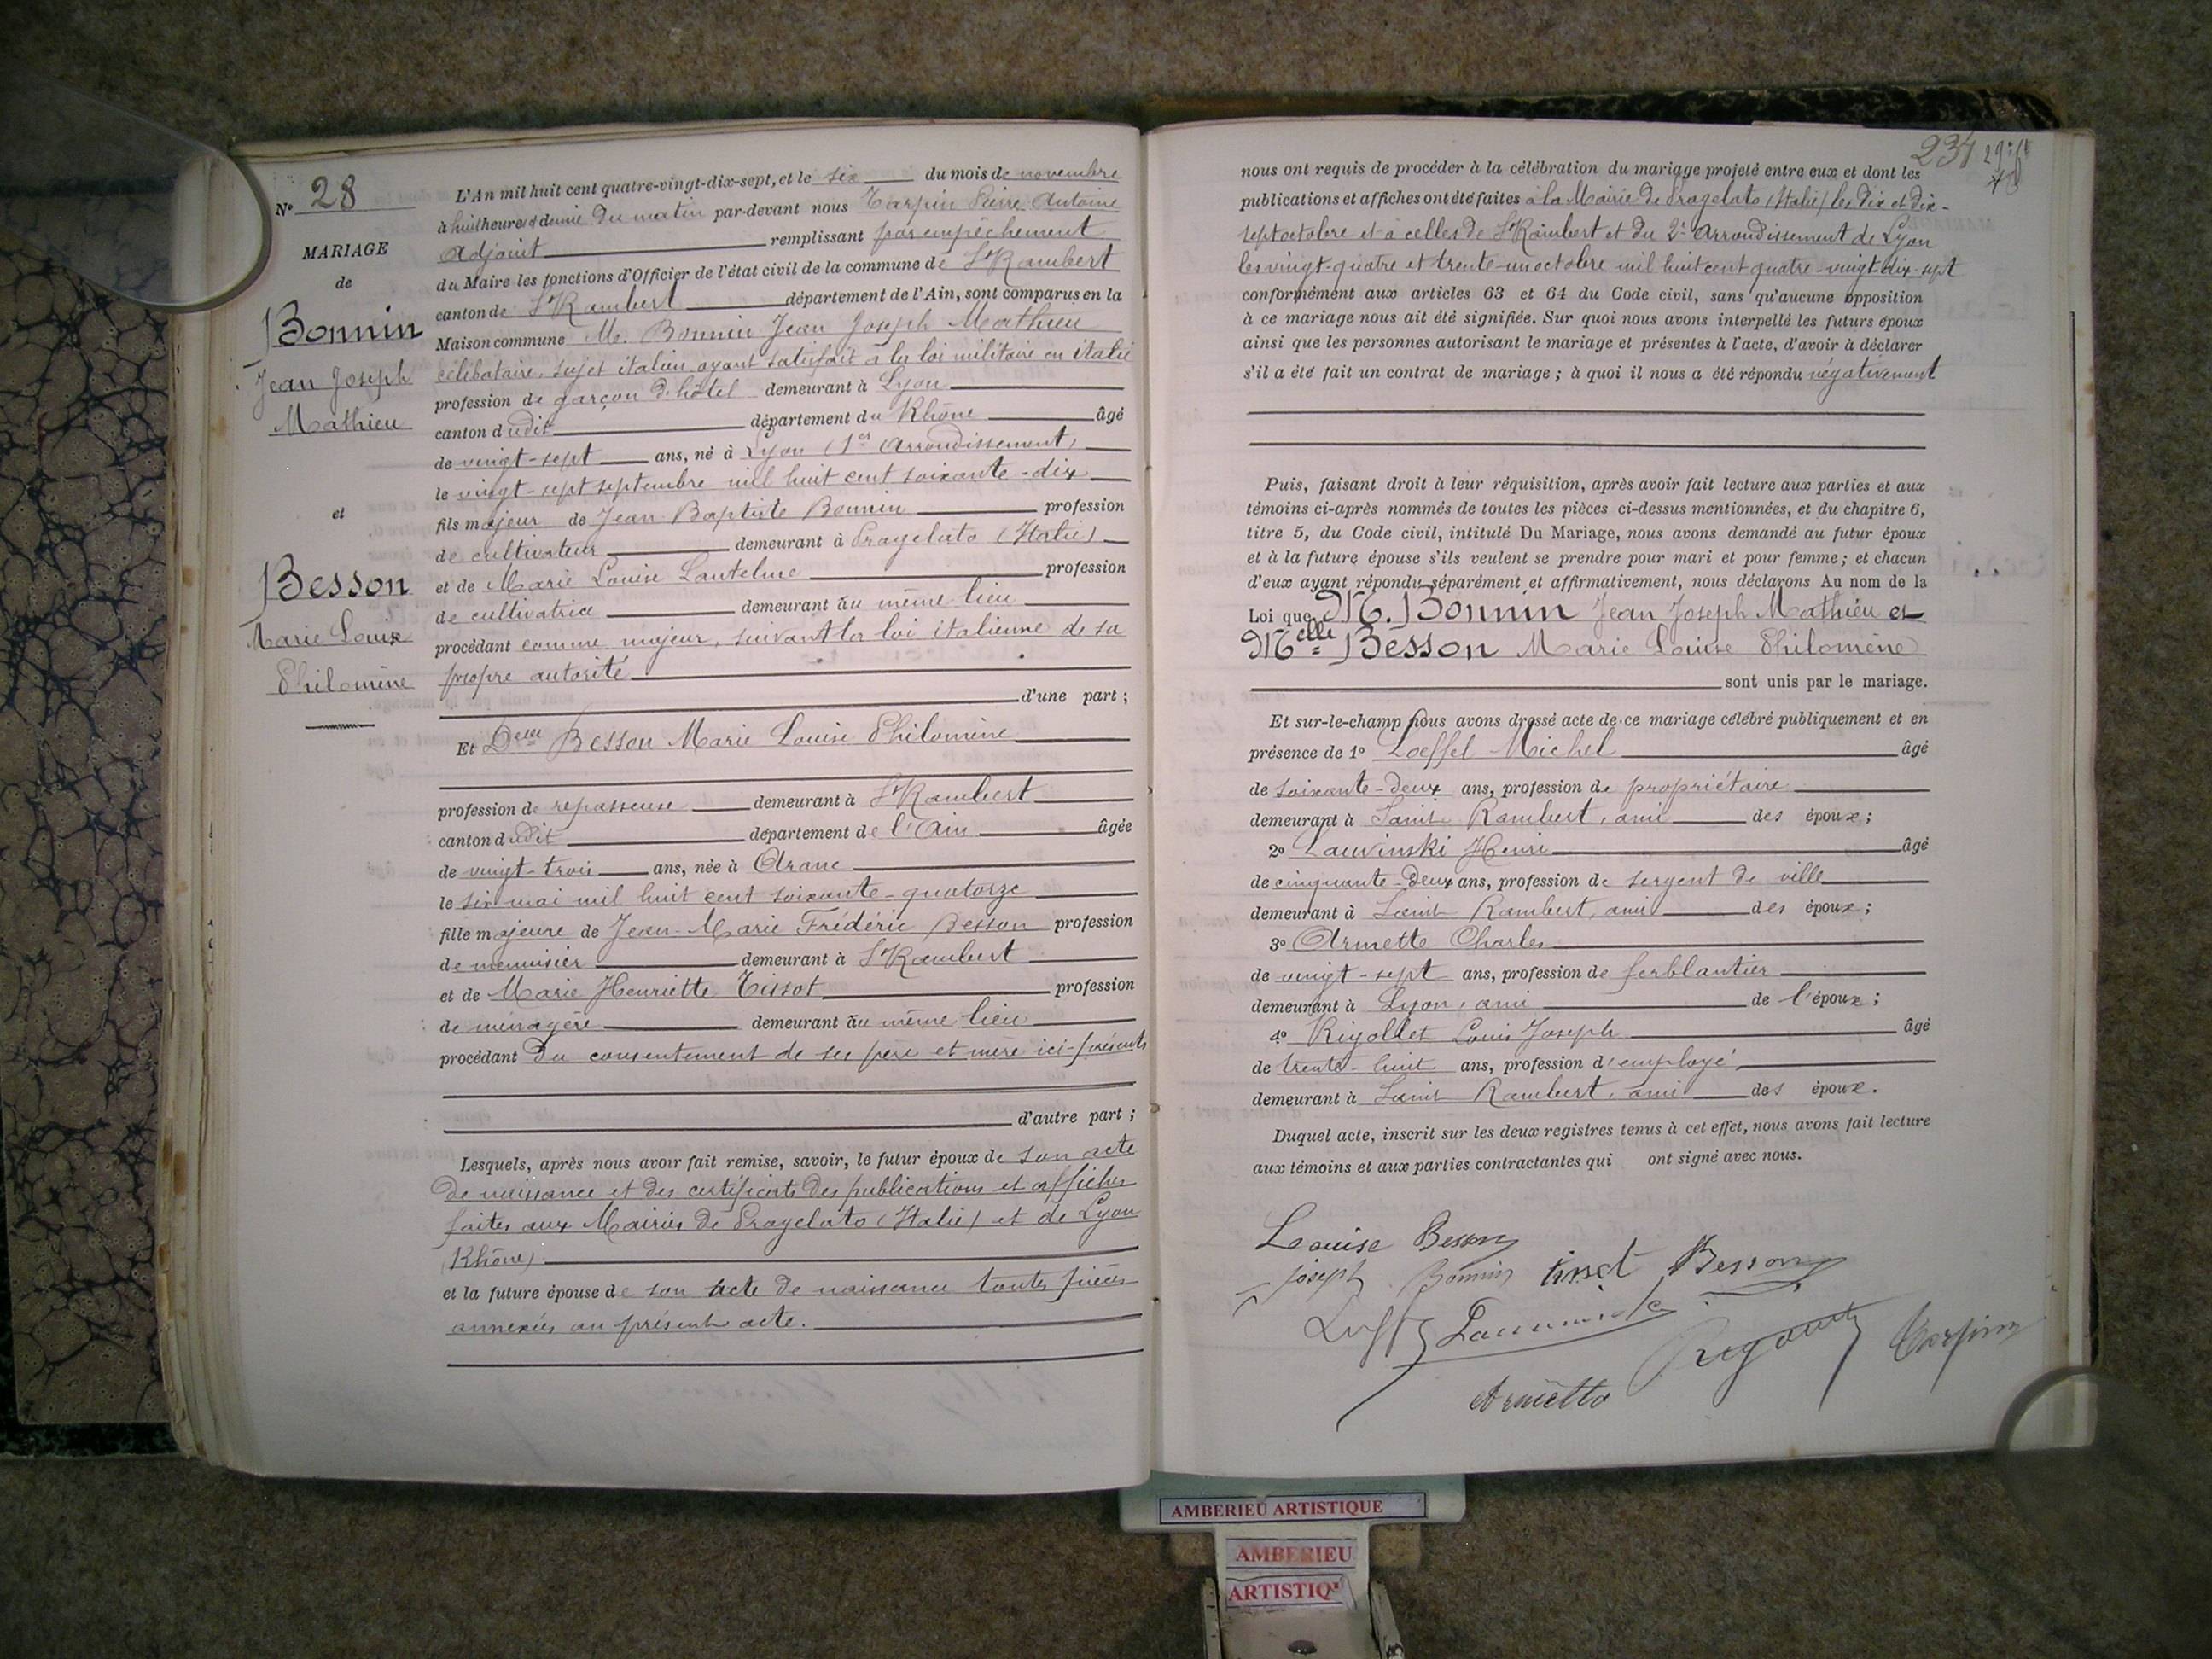 N° 28
MARIAGE
de
Bonnin
Jean Joseph
Mathieu
et
Besson
Marie Louise
Philomène
L'An mil huit cent quatre-vingt-dix-sept, et le six du mois de novembre
à huit heures & demie du matin par-devant nous Tarpin Pierre Antoine
Adjoint remplissant par empêchement
du Maire les fonctions d'Officier de l'état civil de la commune de St Rambert
canton de St Rambert département de l'Ain, sont comparus en la
Maison commune M. Bonnin Jean Joseph Mathieu
célibataire, sujet italien ayant satisfait à la loi militaire en italie
profession de garçon d'hôtel demeurant à Lyon
canton dudit département du Rhône âgé
de vingt-sept ans, né à Lyon (1er Arrondissement)
le vingt-sept septembre mil huit cent soixante-dix
fils majeur de Jean Baptiste Bonnin profession
de cultivateur demeurant à Pragelato (Italie)
et de Marie Louise Lantelme profession
de cultivatrice demeurant au même lieu
procédant comme majeur, suivant la loi italienne de sa
propre autorité
d'une part ;
Et Delle Besson Marie Louise Philomène
profession de repasseuse demeurant à St Rambert
canton dudit département de l'Ain âgée
de vingt-trois ans, née à Aranc
le six mai mil huit cent soixante-quatorze
fille majeure de Jean-Marie Frédéric Besson profession
de menuisier demeurant à St Rambert
et de Marie Henriette Tissot profession
de ménagère demeurant au même lieu
procédant du consentement de ses père et mère ici-présents
d'autre part ;
Lesquels, après nous avoir fait remise, savoir, le futur époux de son acte
de naissance et des certificats des publications et affiches
faites aux Mairies de Pragelato (Italie) et de Lyon
(Rhône)
et la future épouse de son acte de naissance toutes pièces
annexées au présent acte.
234
nous ont requis de procéder à la célébration du mariage projeté entre eux et dont les
publications et affiches ont été faites à la Mairie de Pragelato (Italie) les dix et dix-
sept octobre et à celles de St Rambert et du 2e Arrondissement de Lyon
les vingt-quatre et trente-un octobre mil huit cent quatre-vingt-dix-sept
conformément aux articles 63 et 64 du Code civil, sans qu'aucune opposition
à ce mariage nous ait été signifiée. Sur quoi nous avons interpellé les futurs époux
ainsi que les personnes autorisant le mariage et présentes à l'acte, d'avoir à déclarer
s'il a été fait un contrat de mariage ; à quoi il nous a été répondu négativement
Puis, faisant droit à leur réquisition, après avoir fait lecture aux parties et aux
témoins ci-après nommés de toutes les pièces ci-dessus mentionnées, et du chapitre 6,
titre 5, du Code civil, intitulé Du Mariage, nous avons demandé au futur époux
et à la future épouse s'ils veulent se prendre pour mari et pour femme ; et chacun
d'eux ayant répondu séparément et affirmativement, nous déclarons Au nom de la
Loi que M. Bonnin Jean Joseph Mathieu et
Melle Besson Marie Louise Philomène
sont unis par le mariage.
Et sur-le-champ nous avons dressé acte de ce mariage célébré publiquement et en
présence de 1° Loeffel Michel âgé
de soixante-deux ans, profession de propriétaire
demeurant à Saint Rambert, ami des époux ;
2° Lauvinski Henri âgé
de cinquante-deux ans, profession de sergent de ville
demeurant à Saint Rambert, ami des époux ;
3° Armette Charles
de vingt-sept ans, profession de ferblantier
demeurant à Lyon, ami de l'époux ;
4° Rigollet Louis Joseph âgé
de trente-huit ans, profession d'employé
demeurant à Saint Rambert, ami des époux.
Duquel acte, inscrit sur les deux registres tenus à cet effet, nous avons fait lecture
aux témoins et aux parties contractantes qui ont signé avec nous.
Louise Besson
joseph Bonnin tissot Besson
Tarpin
AMBERIEU ARTISTIQUE
AMBERIEU
ARTISTIQ